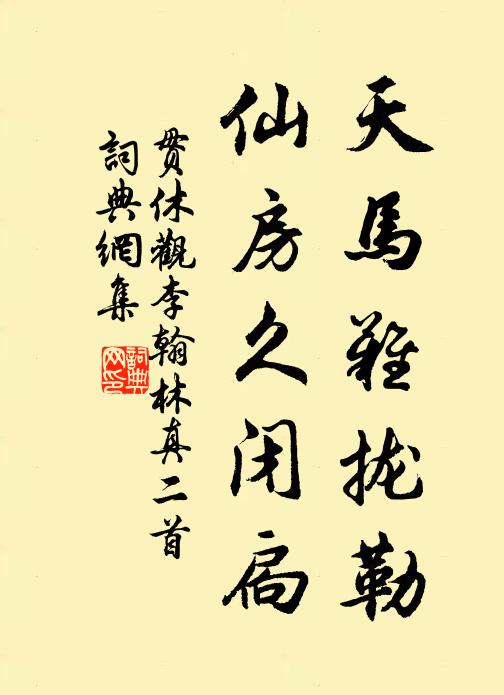 天馬難拢勒
仙房久闭扃
貫休觀李翰林真二首
詞典網集
詞典
网印